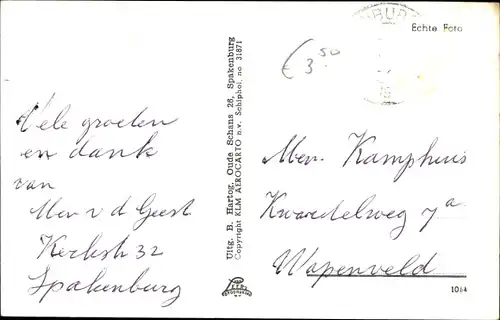 Vele groeten
en dank
van
Mev v d Geest
Kerkstr 32
Spakenburg
Uitg. B. Hartog, Oude Schans 26, Spakenburg
Copyright KLM AEROCARTO n.v. Schiphol, no 31871
€ 3,50
Echte Foto
Mev. Kamphuis
Kwartelweg 7a
Wapenveld
1064